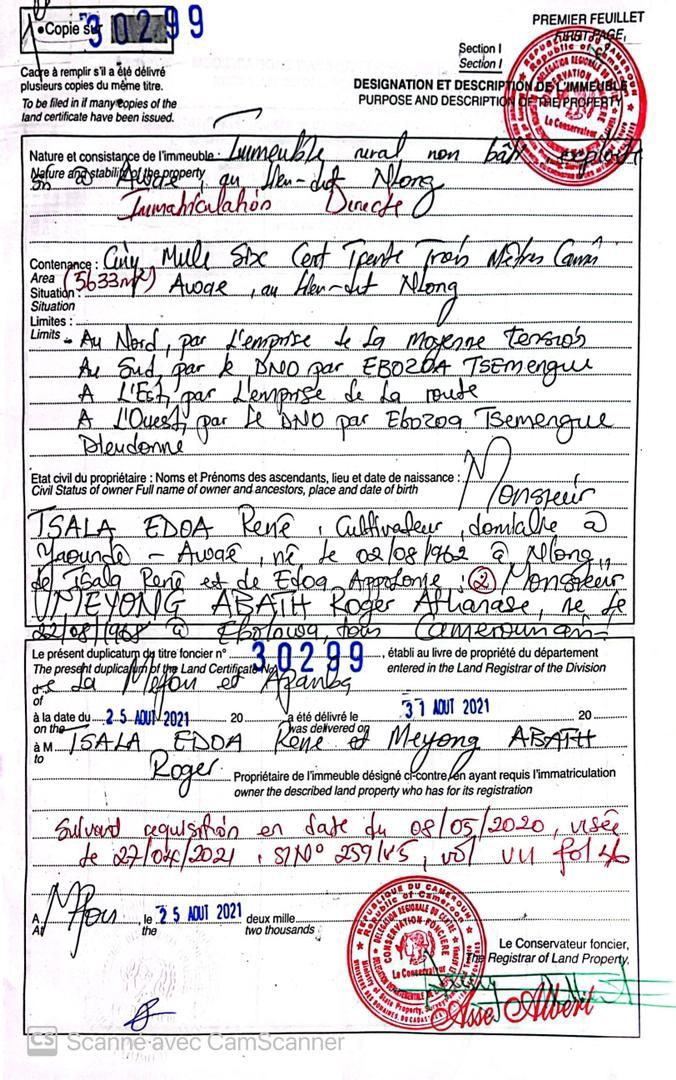 Copie sur 30299
PREMIER FEUILLET
FIRST PAGE
Section I
Section I
Cadre à remplir s'il a été délivré
plusieurs copies du même titre.
To be filed in if many copies of the
land certificate have been issued.
DESIGNATION ET DESCRIPTION DE L'IMMEUBLE
PURPOSE AND DESCRIPTION OF THE PROPERTY
Nature et consistance de l'immeuble : Immeuble rural non bâti, exploité
Nature and stability of the property
à Awae, au lieu-dit Nlong
Immatriculation Directe
Contenance : Cinq Mille Six Cent Trente Trois Mètres Carrés
Area (5633m²)
Situation : Awae, au lieu-dit Nlong
Situation
Limites :
Limits - Au Nord, par l'emprise de la moyenne tension
Au Sud, par le DNO par EBOZOA TSEMENGUE
A l'Est, par l'emprise de la route
A l'Ouest, par le DNO par Ebozoa Tsemengue
Dieudonne
Etat civil du propriétaire : Noms et Prénoms des ascendants, lieu et date de naissance :
Civil Status of owner Full name of owner and ancestors, place and date of birth
Monsieur
TSALA EDOA René, Cultivateur, domicilié à
Yaoundé - Awaé, né le 02/08/1962 à Nlong,
de Tsala René et de Edoa Appolonie ; ② Monsieur
MEYONG ABATH Roger Athanase, né le
22/08/1968 à Ebolowa, tous Camerounais
Le présent duplicatum du titre foncier n° 30299, établi au livre de propriété du département
The present duplicatum of the Land Certificate No entered in the Land Registrar of the Division
de La Mefou et Afamba
of
à la date du 25 AOUT 2021 20 a été délivré le 31 AOUT 2021 20
on the was delivered on
à M TSALA EDOA René et Meyong ABATH
to
Roger Propriétaire de l'immeuble désigné ci-contre, en ayant requis l'immatriculation
owner the described land property who has for its registration
Suivant réquisition en date du 08/05/2020, visée
le 27/04/2021, S/N° 259/45, vol VII fol 46
A Mfou, le 25 AOUT 2021 deux mille
At the two thousands
REPUBLIQUE DU CAMEROUN
Republic of Cameroon
CONSERVATION FONCIERE
Le Conservateur
Le Conservateur foncier,
The Registrar of Land Property,
Asse Albert
CS Scanné avec CamScanner